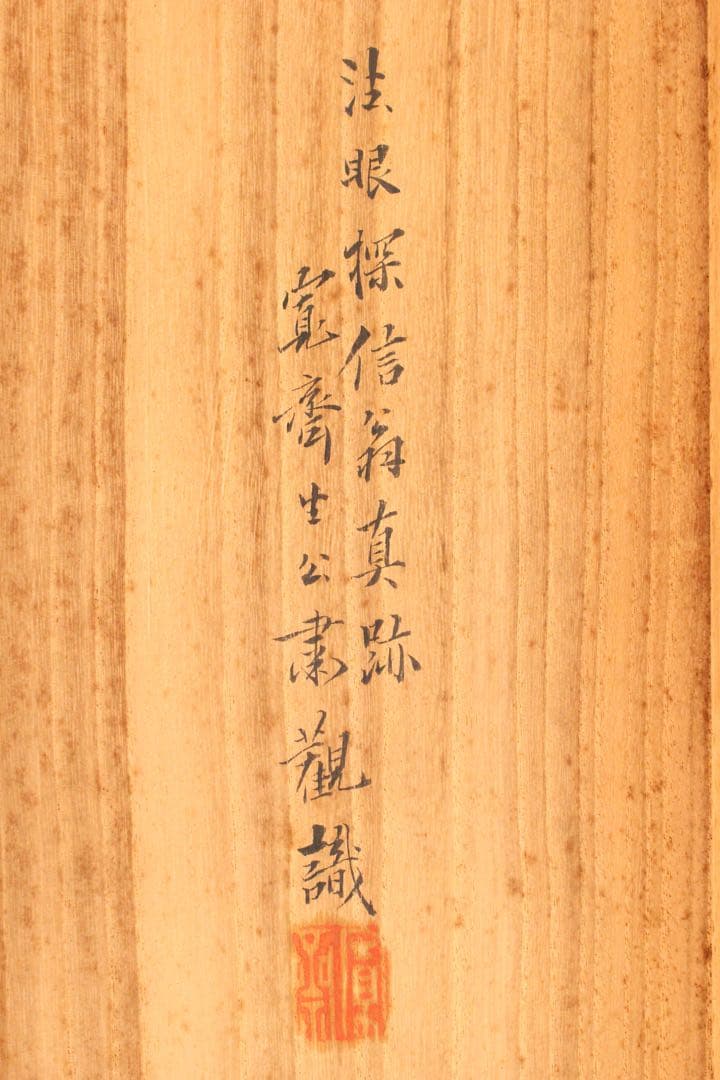 法眼探信翁真跡
寛齋生公肅觀識